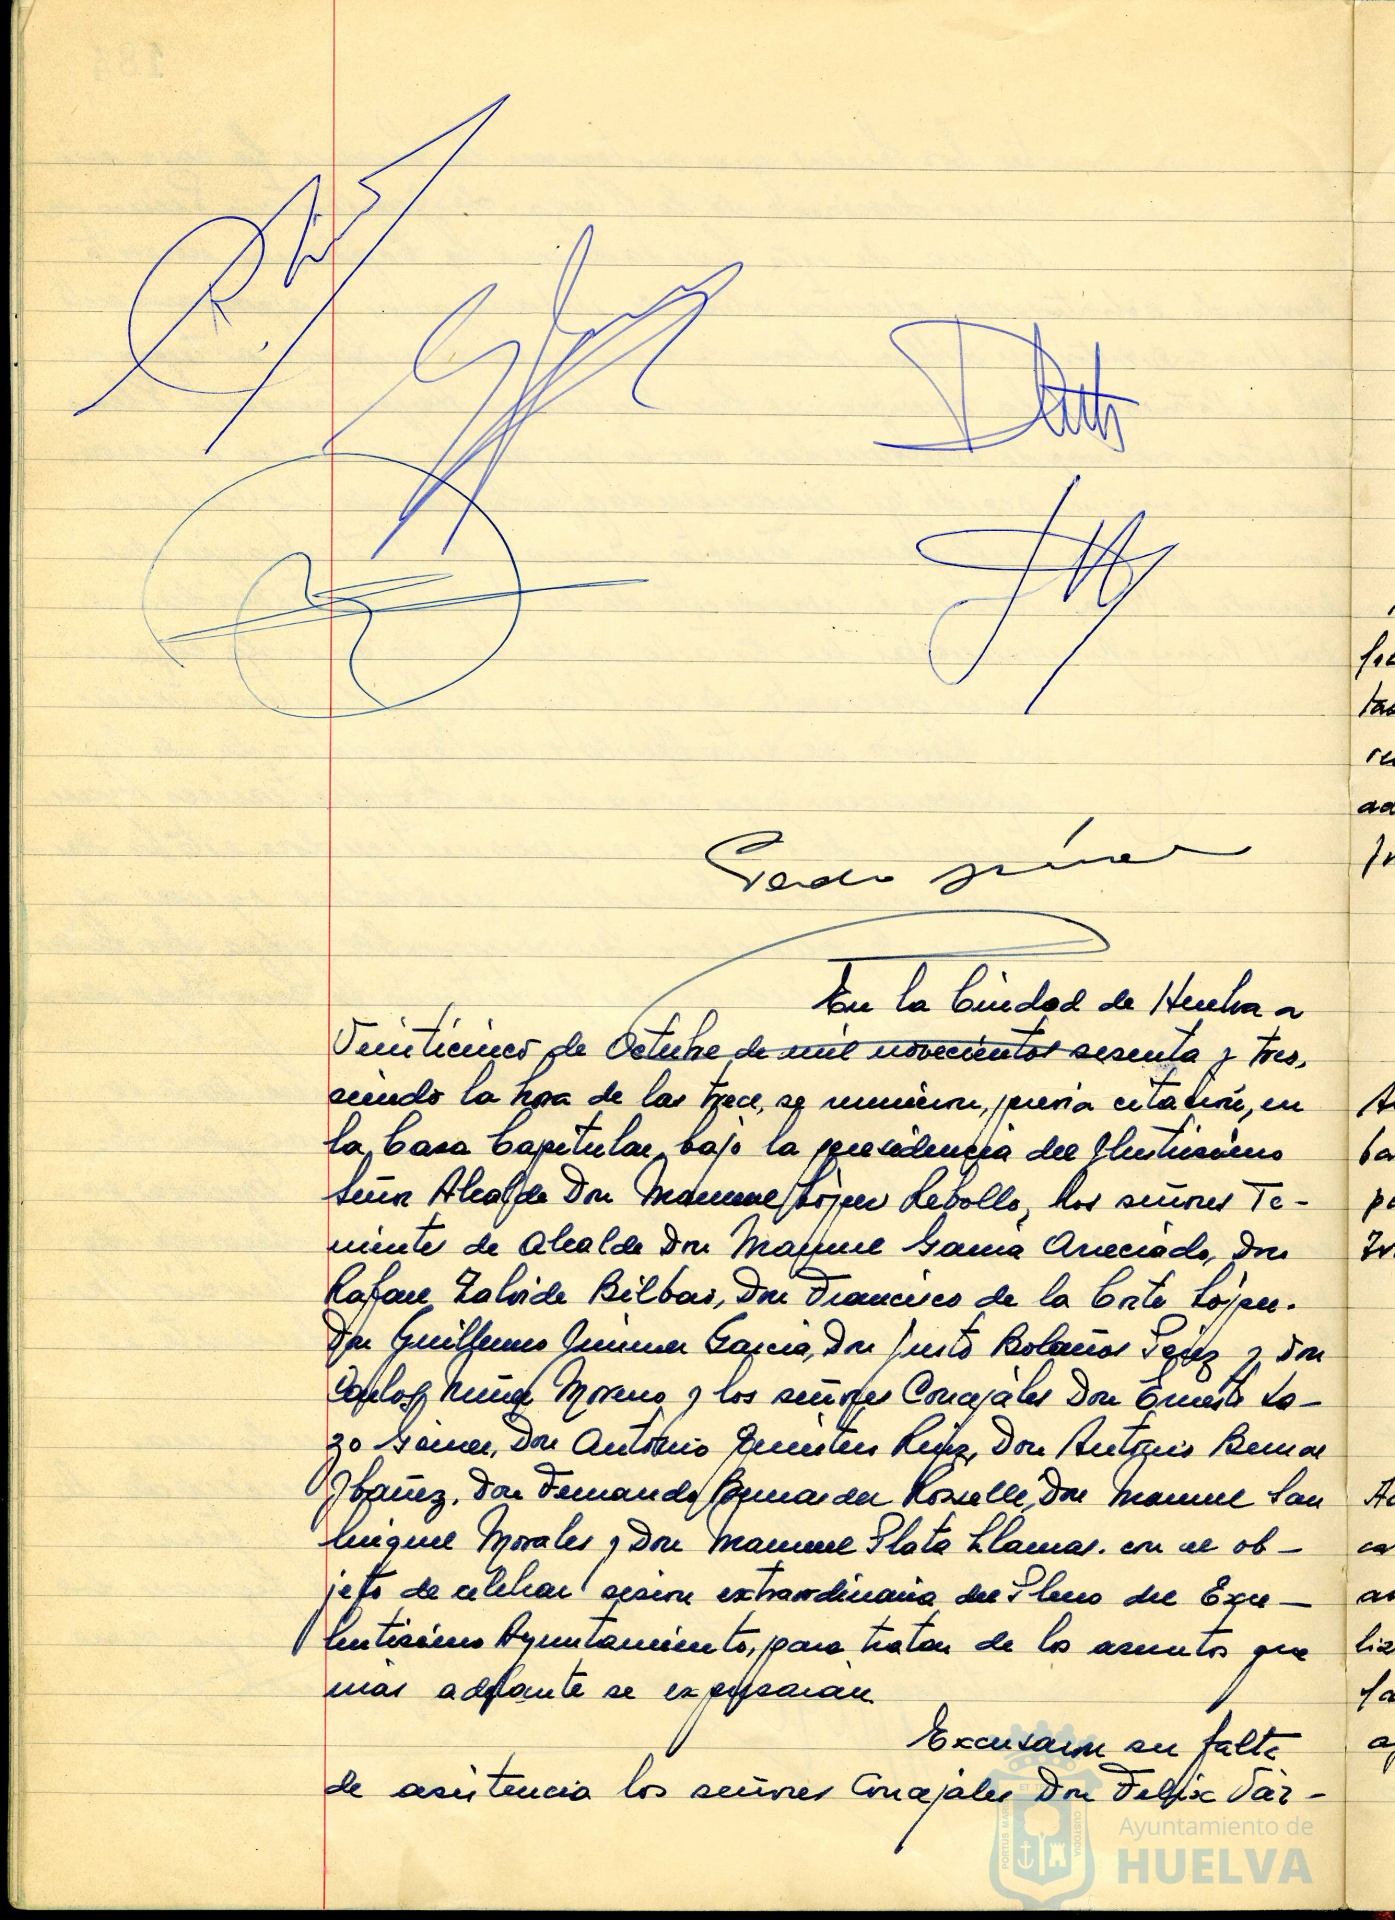 En la Ciudad de Huelva a
Veinticinco de Octubre de mil novecientos sesenta y tres,
siendo la hora de las trece, se reunieron, previa citación, en
la Casa Capitular, bajo la presidencia del Ilustrísimo
Señor Alcalde Don Manuel López Rebollo, los señores Te-
nientes de Alcalde Don Manuel García Don
Rafael Zalvide Bilbao, Don Francisco de la Corte López.
Don Guillermo Jimenez García, Don Justo Bolaños Pérez y Don
Carlos Núñez Moreno y los señores Concejales Don Ernesto La-
zo Don Antonio Ruiz, Don Antonio
Ibañez, Don Fernando Bermudez Don Manuel San
Miguel Morales y Don Manuel Plata Llamas. con el ob-
jeto de celebrar sesion extraordinaria del Pleno del Exce-
lentísimo Ayuntamiento, para tratar de los asuntos que
más adelante se expresarán
Excusaron su falta
de asistencia los señores Concejales Don Felix Váz-
Ayuntamiento de
HUELVA